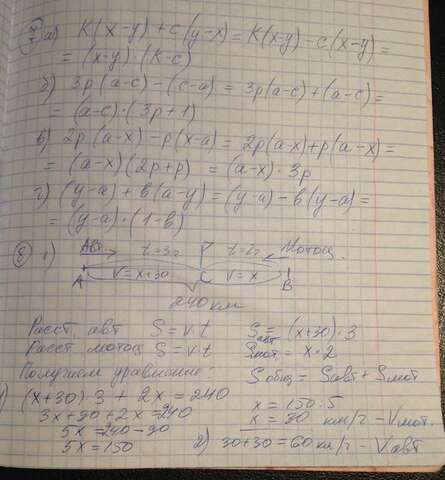 7 а) K(x-y)+c(y-x)=K(x-y)-c(x-y)=
=(x-y)(K-c)
б) 3p(a-c)-(c-a)=3p(a-c)+(a-c)=
=(a-c)·(3p+1)
в) 2p(a-x)-p(x-a)=2p(a-x)+p(a-x)=
=(a-x)(2p+p)=(a-x)·3p
г) (y-a)+b(a-y)=(y-a)-b(y-a)=
=(y-a)·(1-b)
8 1) Авт t=3ч t=2ч Мотоц.
A V=x+30 C V=x B
240 км
Расст. авт S=v·t Sавт=(x+30)·3
Расст мотоц S=v·t Sмот=x·2
Получаем уравнение: Sобщ=Sавт+Sмот
(x+30)·3+2x=240 x=150:5
3x+90+2x=240 x=30 км/ч-Vмот.
5x=240-90
5x=150 2) 30+30=60 км/ч-Vавт